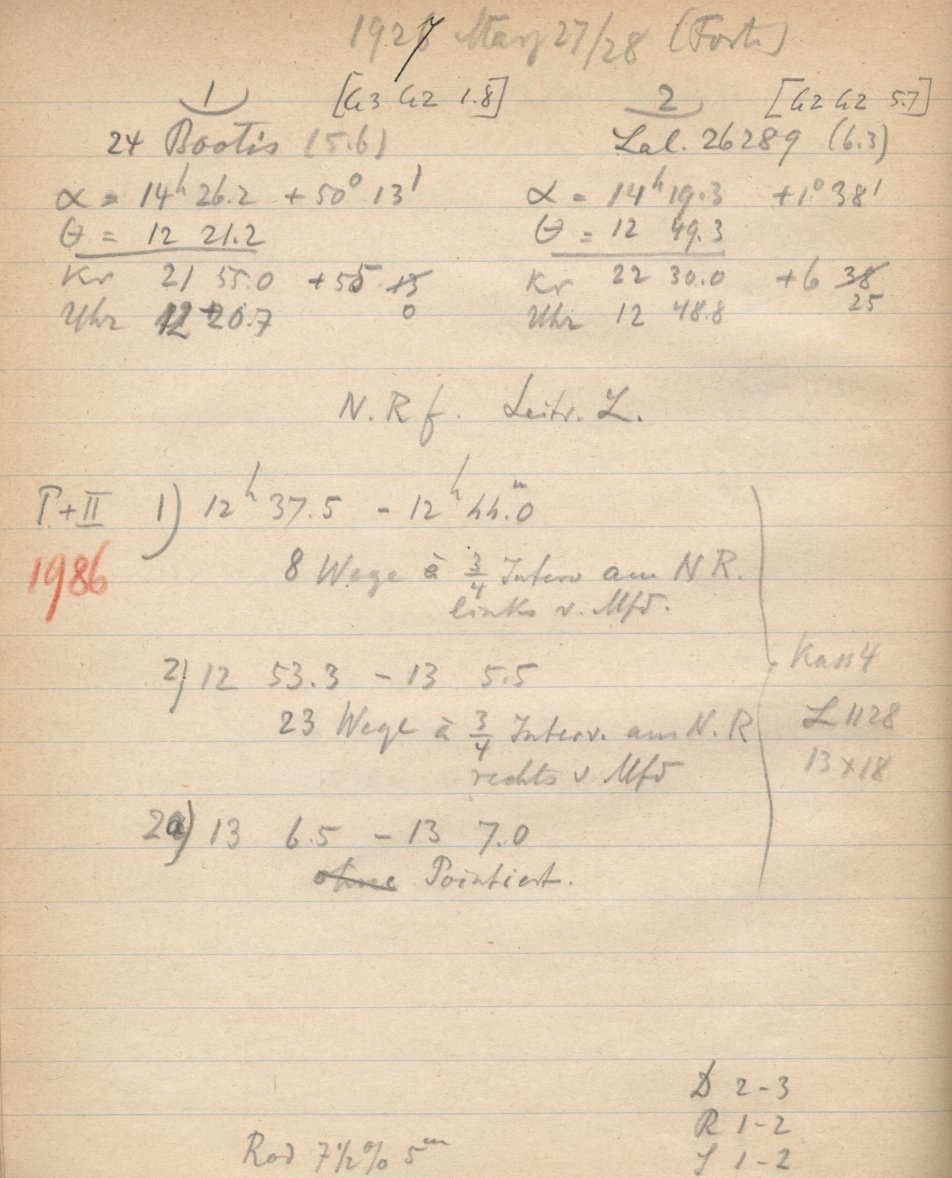 1927 May 27/28 (Forts)
1 [G3 G2 1.8] 2 [G2 G2 5.7]
24 Bootis (5.6) Lal. 26289 (6.3)
α = 14h 26.2 +50° 13' α = 14h 19.3 +1° 38'
θ = 12 21.2 θ = 12 49.3
Kr 21 55.0 +55 13 Kr 22 30.0 +6 38
Uhr 12 20.7 0 Uhr 12 48.8 25
N. R f. Leitr. L.
I + II 1) 12h 37.5 - 12h 44.0m
1986 8 Wege à 3/4 Interv am N R.
links v. Mfd.
2) 12 53.3 - 13 5.5 Kass 4
23 Wege à 3/4 Interv. am N. R L 1128
rechts v Mfd 13 x 18
2a) 13 6.5 - 13 7.0
ohne Pointiert.
D 2-3
R 1-2
Rod 7 1/2% 5m J 1-2